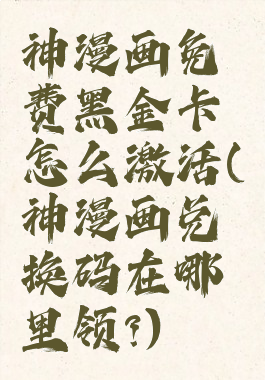 神漫画免
费黑金卡
怎么激活(
神漫画兑
换码在哪
里领?)